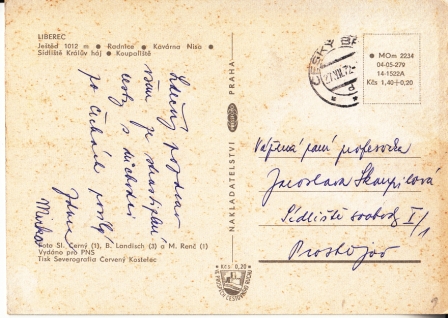 LIBEREC
Ještěd 1012 m ● Radnice ● Kavárna Nisa ●
Sídliště Králův háj ● Koupaliště
Srdečný pozdrav
všem ze
cesty s
po Čechách posílá
Mirka
Foto Sl. Černý (1), B. Landisch (3) a M. Renč (1)
Vydáno pro PNS
Tisk Severografia Červený Kostelec
NAKLADATELSTVÍ PRAHA
Kčs 0,20
ČESKÝ
● MOm 2234
04-05-279
14-1522A
Kčs 1,40+0,20
Vážená paní profesorka
Jaroslava Skoupilová
Sídliště svobody I/1
Prostějov